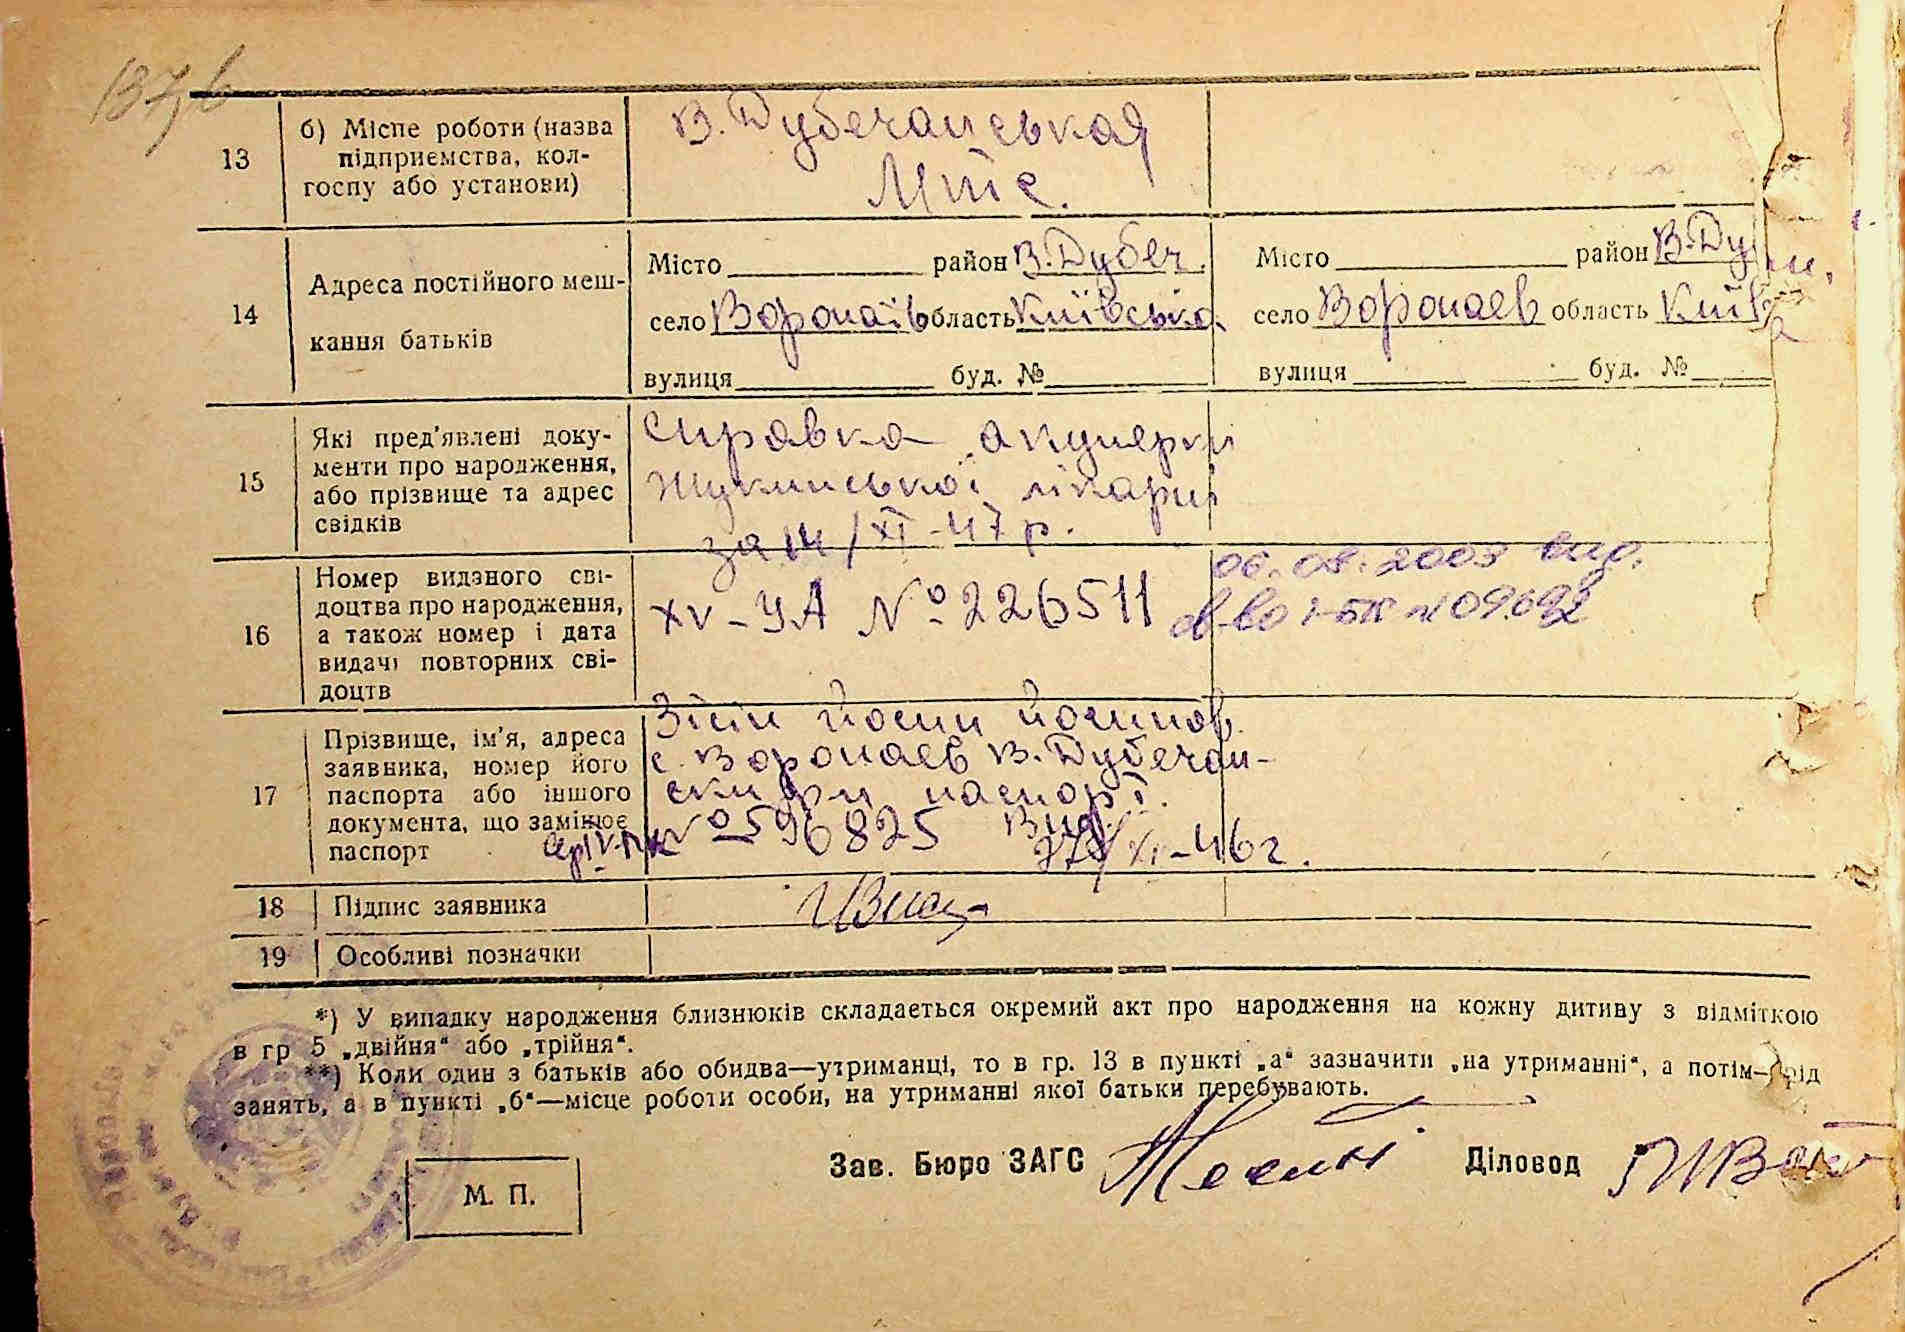 137 б
13
б) Місце роботи (назва
підприємства, кол-
госпу або установи)
В. Дубечанськая
Мтс.
14
Адреса постійного меш-
кання батьків
Місто район В. Дубеч.
село Воропаїв область Київська
вулиця буд. №
Місто район В. Ду
село Воропаев область Київ
вулиця буд. №
15
Які пред'явлені доку-
менти про народження,
або прізвище та адрес
свідків
справка акушерки
Жукинської лікарні
за 14/XI-47 р.
16
Номер виданого сві-
доцтва про народження,
а також номер і дата
видачі повторних сві-
доцтв
XV-УА № 226511
06.08.2003 вид.
св-во 1-БК № 09692
17
Прізвище, ім'я, адреса
заявника, номер його
паспорта або іншого
документа, що замінює
паспорт
Йосип Йосипов.
с. Воропаев В. Дубечан-
ски р-н паспорт.
№ 596825 Вид.
XI-46 г.
18
Підпис заявника
19
Особливі позначки
*) У випадку народження близнюків складається окремий акт про народження на кожну дитину з відміткою
в гр 5 „двійня“ або „трійня“.
**) Коли один з батьків або обидва—утриманці, то в гр. 13 в пункті „а“ зазначити „на утриманні“, а потім—рід
занять, а в пункті „б“—місце роботи особи, на утриманні якої батьки перебувають.
Зав. Бюро ЗАГС
Діловод
М. П.